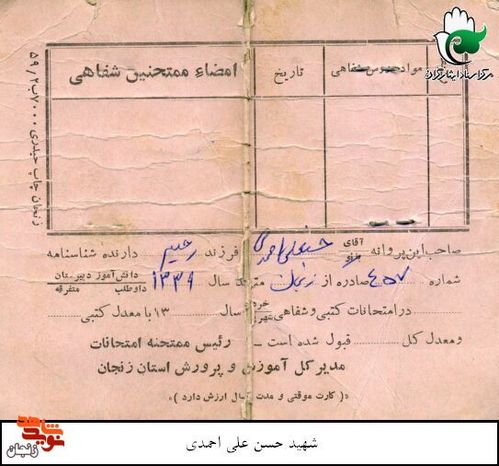 مرکز اسناد ایثارگران
مواد دروس شفاهی
تاریخ
امضاء ممتحنین شفاهی
زنجان چاپ حیدری ۷۰۰۰ب۵۹/۲
صاحب این پروانه آقای حسنعلی احمدی فرزند رحیم دارنده شناسنامه
بانو
شماره ۴۵۷ صادره از زنجان متولد سال ۱۳۳۹ دانش‌آموز دبیرستان
داوطلب متفرقه
در امتحانات کتبی و شفاهی خرداد سال ۱۳ با معدل کتبی
شهریور
و معدل کل قبول شده است – رئیس ممتحنه امتحانات
مدیر کل آموزش و پرورش استان زنجان
«( کارت موقتی و مدت یکسال ارزش دارد )»
نوید شاهد
زنجان
شهید حسن علی احمدی